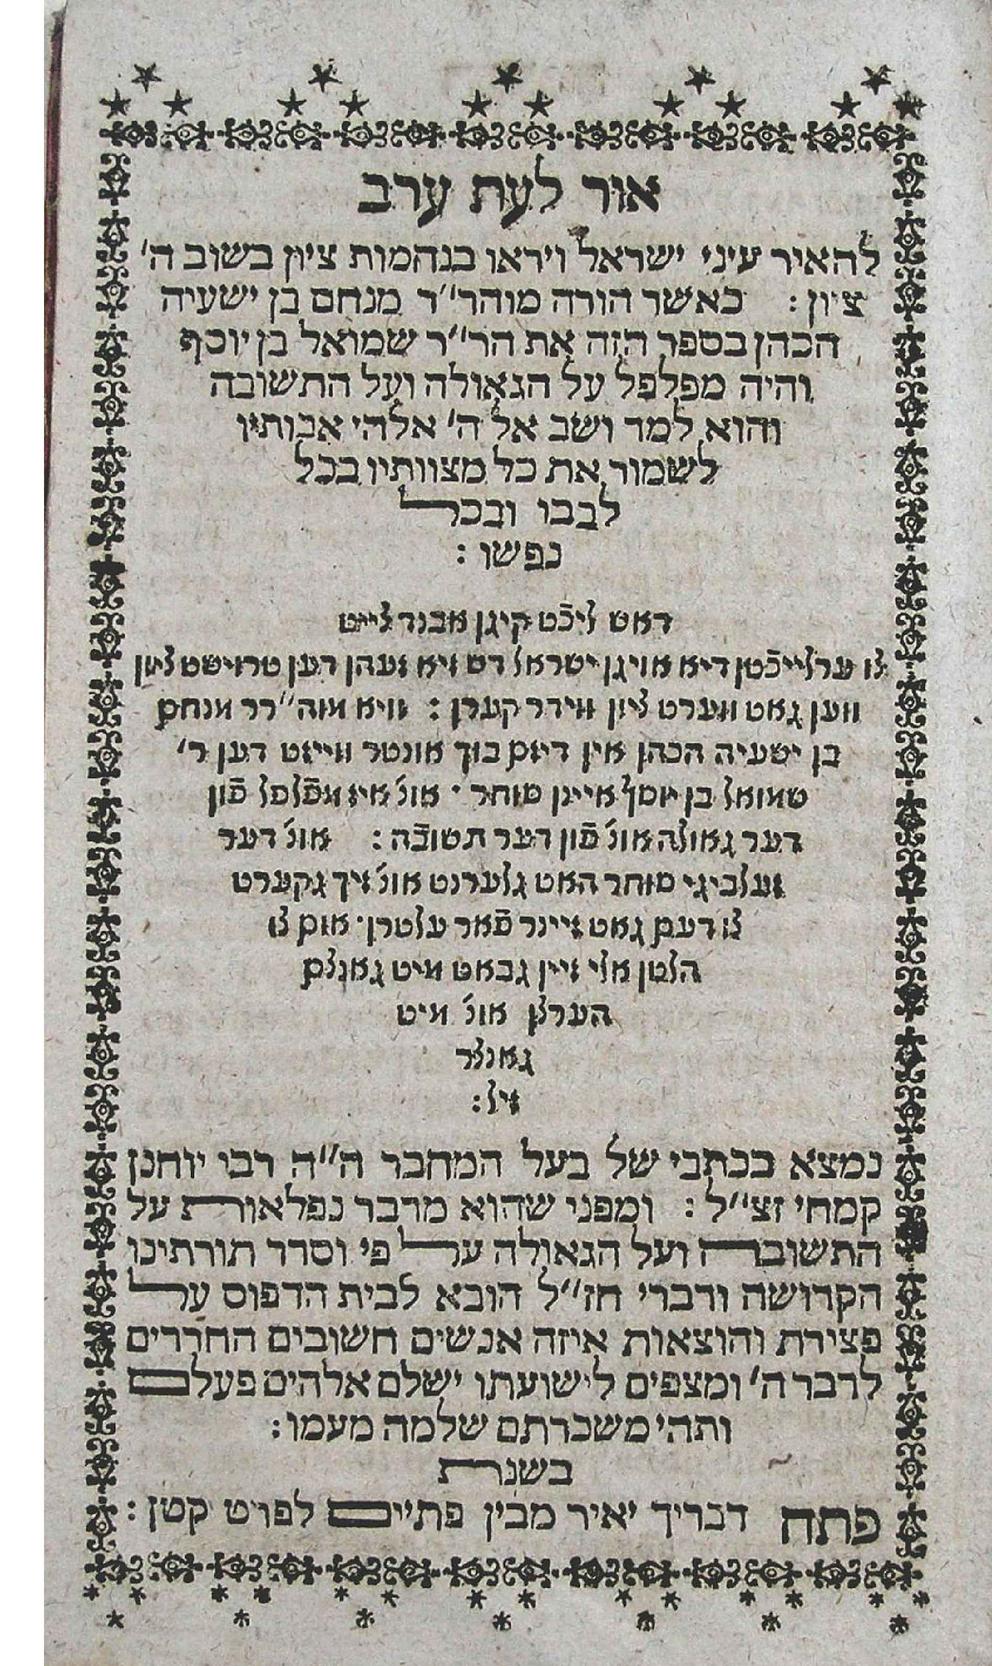 אור לעת ערב
להאיר עיני ישראל ויראו בנחמות ציון בשוב ה׳
ציון : כאשר הורה מוהר״ר מנחם בן ישעיה
הכהן בספר הזה את הר״ר שמואל בן יוסף
והיה מפלפל על הגאולה ועל התשובה
והוא למד ושב אל ה׳ אלהי אבותיו
לשמור את כל מצוותיו בכל
לבבו ובכל
נפשו :
דאש ליכֿט קיגן אבנד צייט
צו ערלייכֿטן דיא אויגן ישראל דש זיא זעהן דען טרוישט ציון
ווען גאט ווערט ציון ווידר קערן : וויא מוה״רר מנחם
בן ישעיה הכהן אין דיזם בוך אונטר ווייזט דען ר׳
שמואל בן יוסף איינן סוחר · אונ׳ איז מפֿלפל פֿון
דער גאולה אונ׳ פֿון דער תשובֿה : אונ׳ דער
זעלביגי סוחר האט גלערנט אונ׳ זיך גקערט
צו דעם גאט זיינר פֿאר עלטרן · אום צו
הלטן אלי זיין גבאט מיט גאנצם
הערצן אונ׳ מיט
גאנצר
זיל :
נמצא בכתבי של בעל המחבר ה״ה רבי יוחנן
קמחי זצ״ל : ומפני שהוא מדבר נפלאות על
התשובה ועל הגאולה על פי וסדר תורתינו
הקדושה ודברי חז״ל הובא לבית הדפוס על
פצירת והוצאות איזה אנשים חשובים החרדים
לדבר ה׳ ומצפים לישועתו ישלם אלהים פעלם
ותהי משכרתם שלמה מעמו :
בשנת
פתח דבריך יאיר מבין פתיים לפרט קטן :